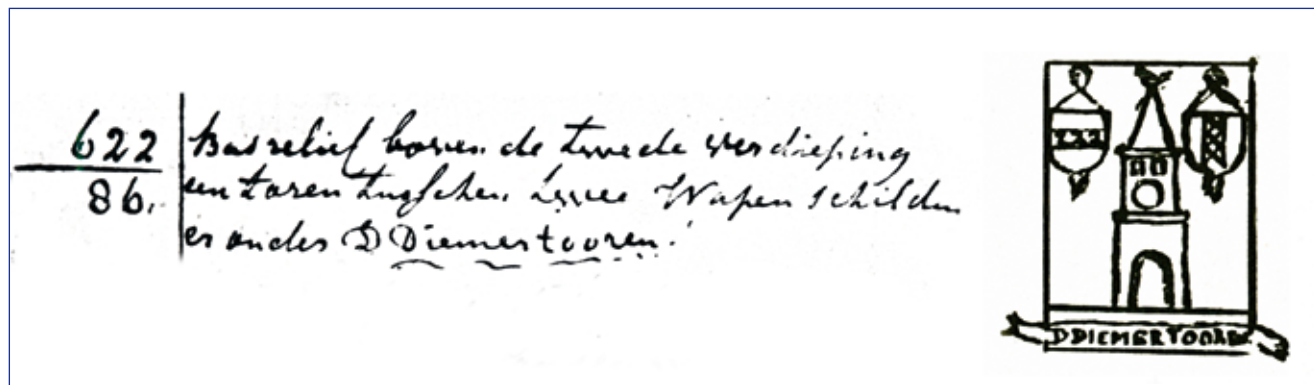 622
86.
Bas relief boven de tweede verdieping
een toren tusschen twee Wapenschilden
er onder D Diemertooren.
D DIEMERTOOREN